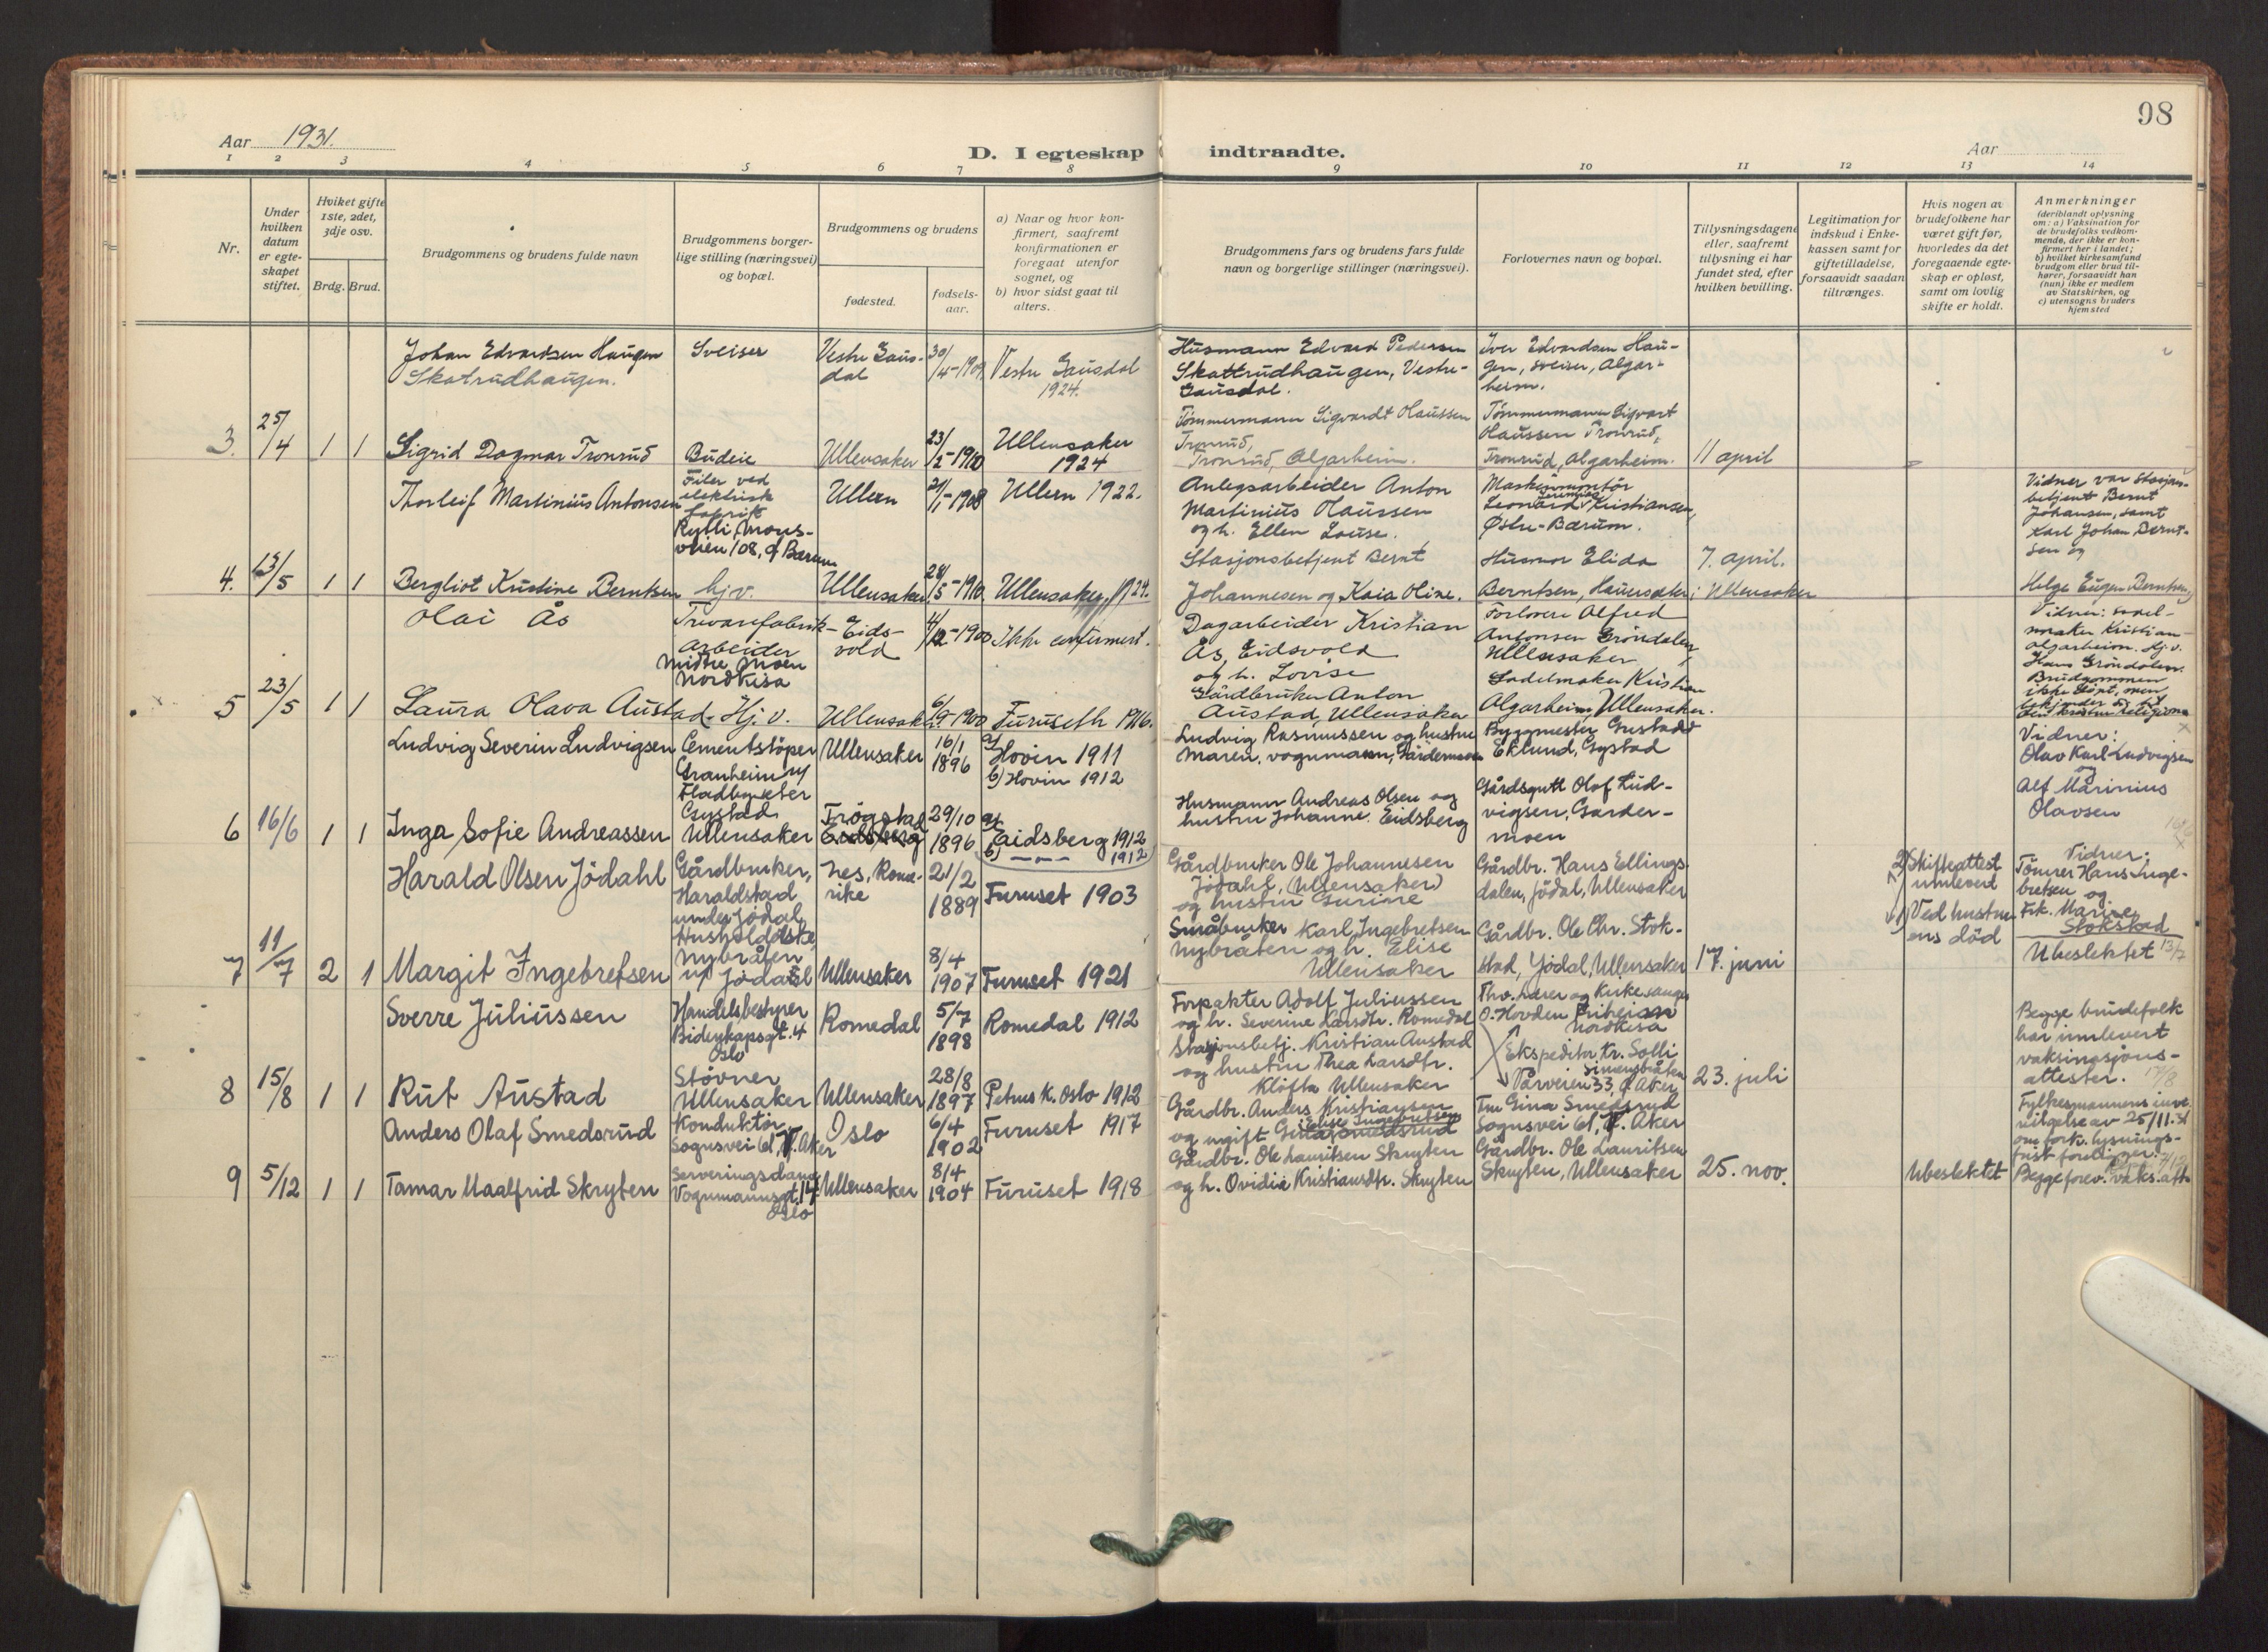 98
Aar 1931.
D. I egteskap indtraadte.
Aar
1 2 3 4 5 6 7 8 9 10 11 12 13 14
Nr.
Under hvilken datum er egteskapet stiftet.
Hviket gifte 1ste, 2det, 3dje osv.
Brdg. Brud.
Brudgommens og brudens fulde navn
Brudgommens borgerlige stilling (næringsvei) og bopæl.
Brudgommens og brudens
fødested.
fødselsaar.
a) Naar og hvor konfirmert, saafremt konfirmationen er foregaat utenfor sognet, og
b) hvor sidst gaat til alters.
Brudgommens fars og brudens fars fulde navn og borgerlige stillinger (næringsvei).
Forlovernes navn og bopæl.
Tillysningsdagene eller, saafremt tillysning ei har fundet sted, efter hvilken bevilling.
Legitimation for indskud i Enkekassen samt for giftetilladelse, forsaavidt saadan tiltrænges.
Hvis nogen av brudefolkene har været gift før, hvorledes da det foregaaende egteskap er opløst, samt om lovlig skifte er holdt.
Anmerkninger
(deriblandt oplysning om: a) Vaksination for de brudefolks vedkommende, der ikke er konfirmert her i landet; b) hvilket kirkesamfund brudgom eller brud tilhører, forsaavidt han (hun) ikke er medlem av Statskirken, og c) utensogns bruders hjemsted
Johan Edvardsen Haugen
Skatrudhaugen.
Sveiser
Vestre Gausdal
30/4-1909
Vestre Gausdal
1924.
Husmann Edvard Pedersen
Skattrudhaugen, Vestre-
Gausdal.
Iver Edvardsen Hau-
gen, sveiser, Algar-
heim.
3. 25/4 1 1
Sigrid Dagmar Tronrud
Budeie
Ullensaker
23/2-1910
Ullensaker
1924
Tømmermann Sigvardt Olaussen
Tronrud,
Tronrud, Algarheim.
Tømmermann Sigvart
Olaussen Tronrud,
Tronrud, Algarheim.
11 april
Thorleif Martinius Antonsen
Filer ved
elektrisk
fabrik
Ullern
21/1-1908
Ullern 1922.
Anlegsarbeider Anton
Martinius Olaussen
og h. Ellen Louise.
Maskinmontør
Leonard Kristiansen,
Østre-Bærum.
Vidner var Stasjons-
betjent Bernt
Johansen, samt
Karl Johan Bernt-
sen og
4. 13/5 1 1
Bergliot Kristine Berntsen
hj.v.
Ullensaker
28/5-1910
Ullensaker, 1924.
Stasjonsbetjent Bernt
Johannesen og Kaia Oline.
Husmor Elida
Berntsen, Hauersæter
7. april.
i Ullensaker
Helge Eugen Berntsen
Olai Ås
Trevarefabrik-
arbeider
Midtre Moen
Nordkisa
Eids-
vold
4/12-1900
Ikke confirmert.
Dagarbeider Kristian
Ås, Eidsvold
og h. Lovise
Forlovere Alfred
Antonsen Grøndalen,
Ullensaker
Vidner: sadel-
maker Kristian
Algarheim. Hj.v.
Hans Grøndalen.
Brudgommen
ikke døpt, men
5 23/5 1 1
Laura Olava Austad
Hj. v.
Ullensaker
6/9-1900
Furuseth 1916.
Gårdbruker Anton
Austad, Ullensaker
Sadelmaker Kristian
Algarheim, Ullensaker.
Ludvig Severin Ludvigsen
Cementstøper
Granheim u/
Gystad
Ullensaker
16/1
1896
a) Hovin 1911
b) Hovin 1912
Ludvig Rasmussen og hustru
Maren, vognmann, Gardermoen
Byggmester Gustad
Eklund, Gystad
Vidner:
Olav Karl Ludvigsen
og
Alf Marinius
Olavsen
6 16/6 1 1
Inga Sofie Andreassen
Ullensaker
Trøgstad
Eidsberg
29/10
1896
a) Eidsberg 1912
b) — — — 1912
Husmann Andreas Olsen og
hustru Johanne. Eidsberg
Gårdsgutt Olaf Lud-
vigsen, Garder-
moen
Harald Olsen Jödahl
Gårdbruker,
Haraldstad
under Jødal
Nes, Rome-
rike
21/2
1889
Furuset 1903
Gårdbruker Ole Johannesen
Jødahl, (Ullensaker)
og hustru Gurine
Gårdbr. Hans Ellings-
dalen, Jødal, Ullensaker
2) Skifteattest
innlevert
1) Ved hustru-
ens død
Vidner:
Tømrer Hans Inge-
bretsen og
Frk. Marine
Stokstad
7 11/7 2 1
Margit Ingebretsen
Nybråten
u/ Jødahl
Ullensaker
8/4
1907
Furuset 1921
Småbruker Karl Ingebretsen
Nybråten og h. Elise
Ullensaker
Gårdbr. Ole Chr. Stok-
stad, Jödal, Ullensaker
17. juni
Ubeslektet 13/7
Sverre Juliussen
Handelsbestyrer
Oslo
Romedal
5/7
1898
Romedal 1912
Forpakter Adolf Juliussen
og h. Severine Larsdtr. Romedal
Fhv. lærer og kirkesanger
O. Hovden
Nordkisa
Begge brudefolk
har innlevert
vaksinasjons-
attester. 17/8
8 15/8 1 1
Rut Austad
Støvner
Ullensaker
Ullensaker
28/8
1897
Petrus K. Oslo 1912
Stasjonsbetj. Kristian Austad
og hustru Thea Larsdtr.
Kløfta Ullensaker
Ekspeditør Kr. Solli
Simensbråten
Vårveien 33, Ø. Aker
23. juli
Anders Olaf Smedsrud
Konduktør
Sognsvei 61, V. Aker
Oslo
6/4
1902
Furuset 1917
Gårdbr. Anders Kristiansen
og ugift
Fru Gina Smedsrud
Sognsvei 61, V. Aker
Fylkesmannens inn-
vilgelse av 25/11.31
om fork. lysnings-
frist foreligger.
9 5/12 1 1
Tamar Maalfrid Skryten
Serveringsdame
Vognmannsgt. 14
Oslo
Ullensaker
8/4
1904
Furuset 1918
Gårdbr. Ole Lauritsen Skryten
og h. Ovidia Kristiansdtr. Skryten
Gårdbr. Ole Lauritsen
Skryten, Ullensaker
25. nov.
Ubeslektet
Begge forev. vaks. att.